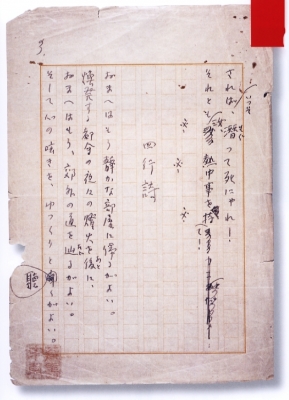 いつそ
されば、潜って死にやれ！
それとも 熱中事を
※ ※
※
四行詩
おまへはもう静かな部屋に帰るがよい。
煥発する都会の夜々の燈火を後に、
おまへはもう、郊外の道を辿るがよい。
そして心の呟きを、ゆつくりと聴くがよい。
聴
3.